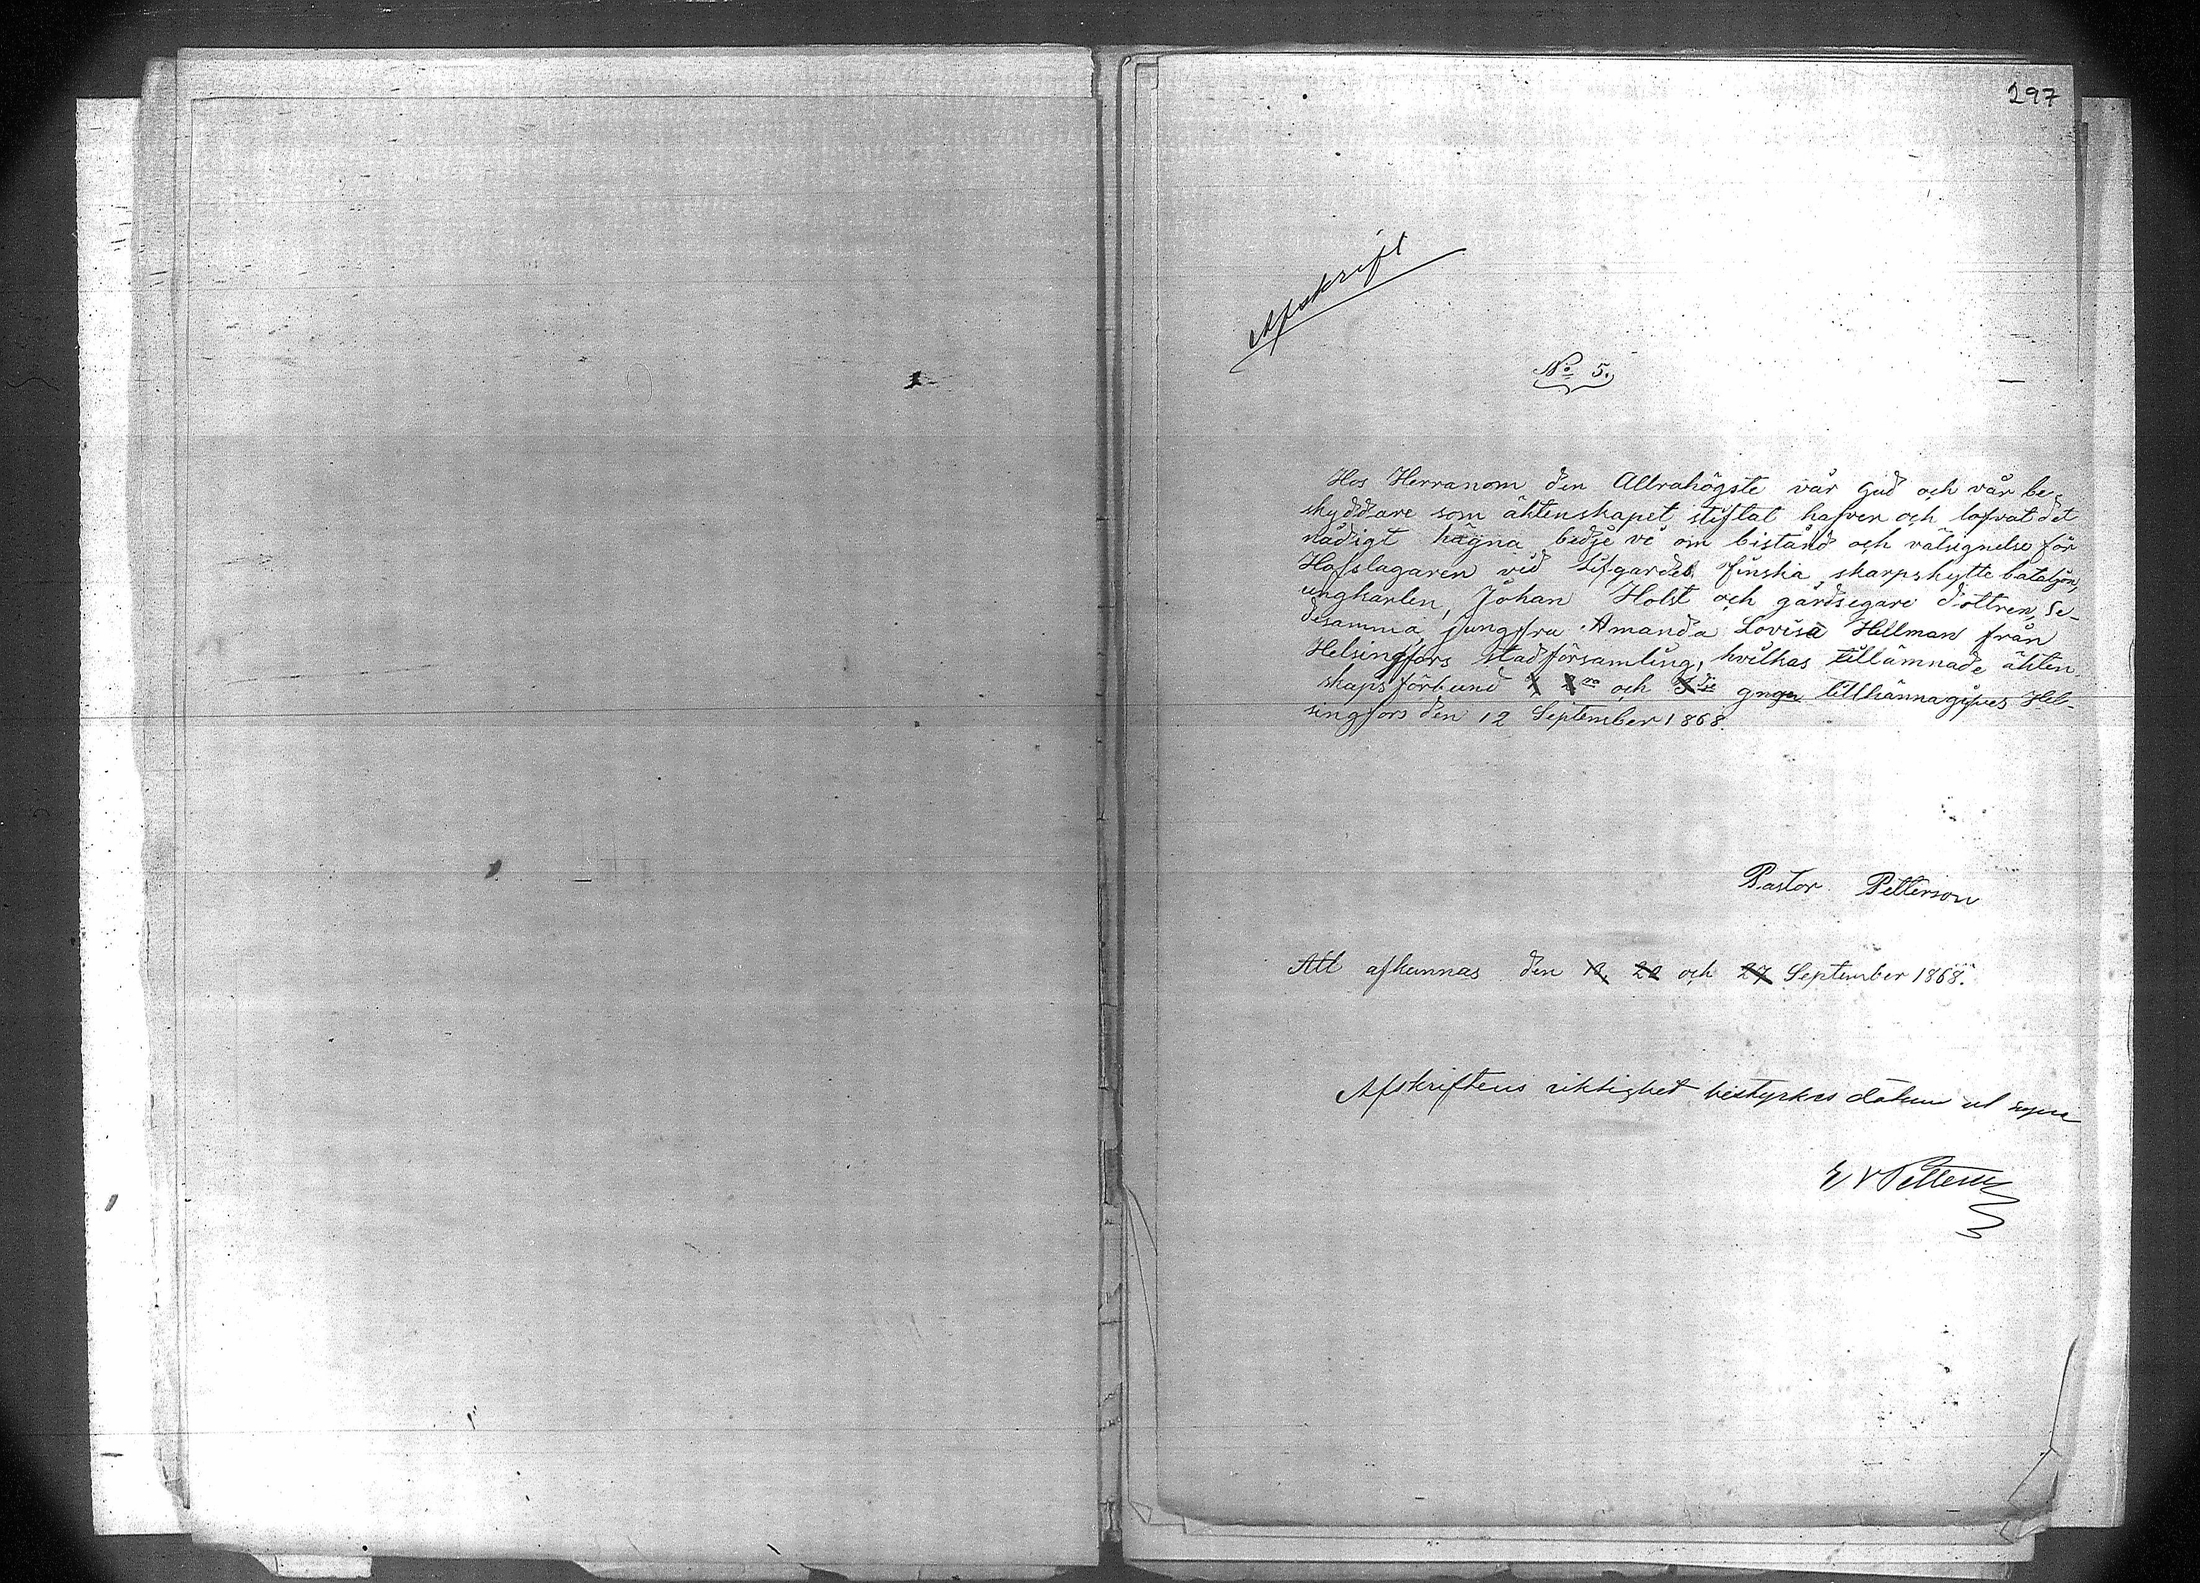 297
Afskrift
No 5.
Hos Herranom den Allrahögste vår Gud och vår be-
skyddare som äktenskapet stiftat hafver och lofvat det
nådigt hägna bedje vi om bistånd och välsignelse för
Hofslagaren vid Lifgardets finska skarpskytte bataljon,
ungkarlen, Johan Holst och gårdsegare dottren, De-
desamma jungfru Amanda Lovisa Hellman från
Helsingfors stadförsamling, hvilkas tillämnade äkten
skapsförbund 1 2ra och 3dje gngn tillkännagifves Hel-
singfors den 12 September 1868.
Pastor Petterson
Att afkunnas den 13 20 och 27 September 1868.
Afskriftens riktighet bestyrkes datum ut supra
E V Petterson